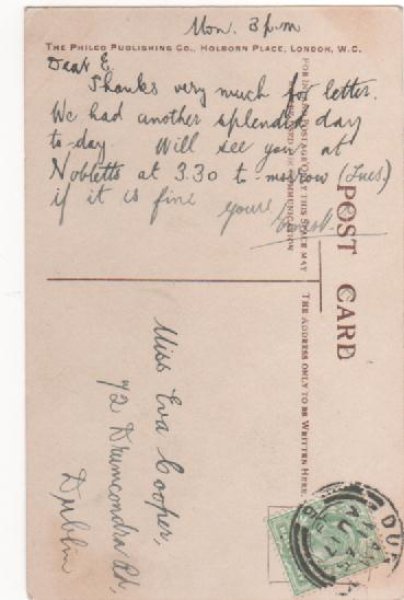 Mon. 3 p.m
THE PHILCO PUBLISHING CO., HOLBORN PLACE, LONDON, W.C.
Dear E.
Thanks very much for letter.
We had another splendid day
to-day. Will see you at
Nobletts at 3.30 to-morrow (Tues)
if it is fine
yours
Ernest.
FOR INLAND POSTAGE ONLY THIS SPACE MAY
COMMUNICATION
POST CARD
THE ADDRESS ONLY TO BE WRITTEN HERE.
Miss Eva Cooper,
72 Drumcondra Rd,
Dublin
DU
AU 17